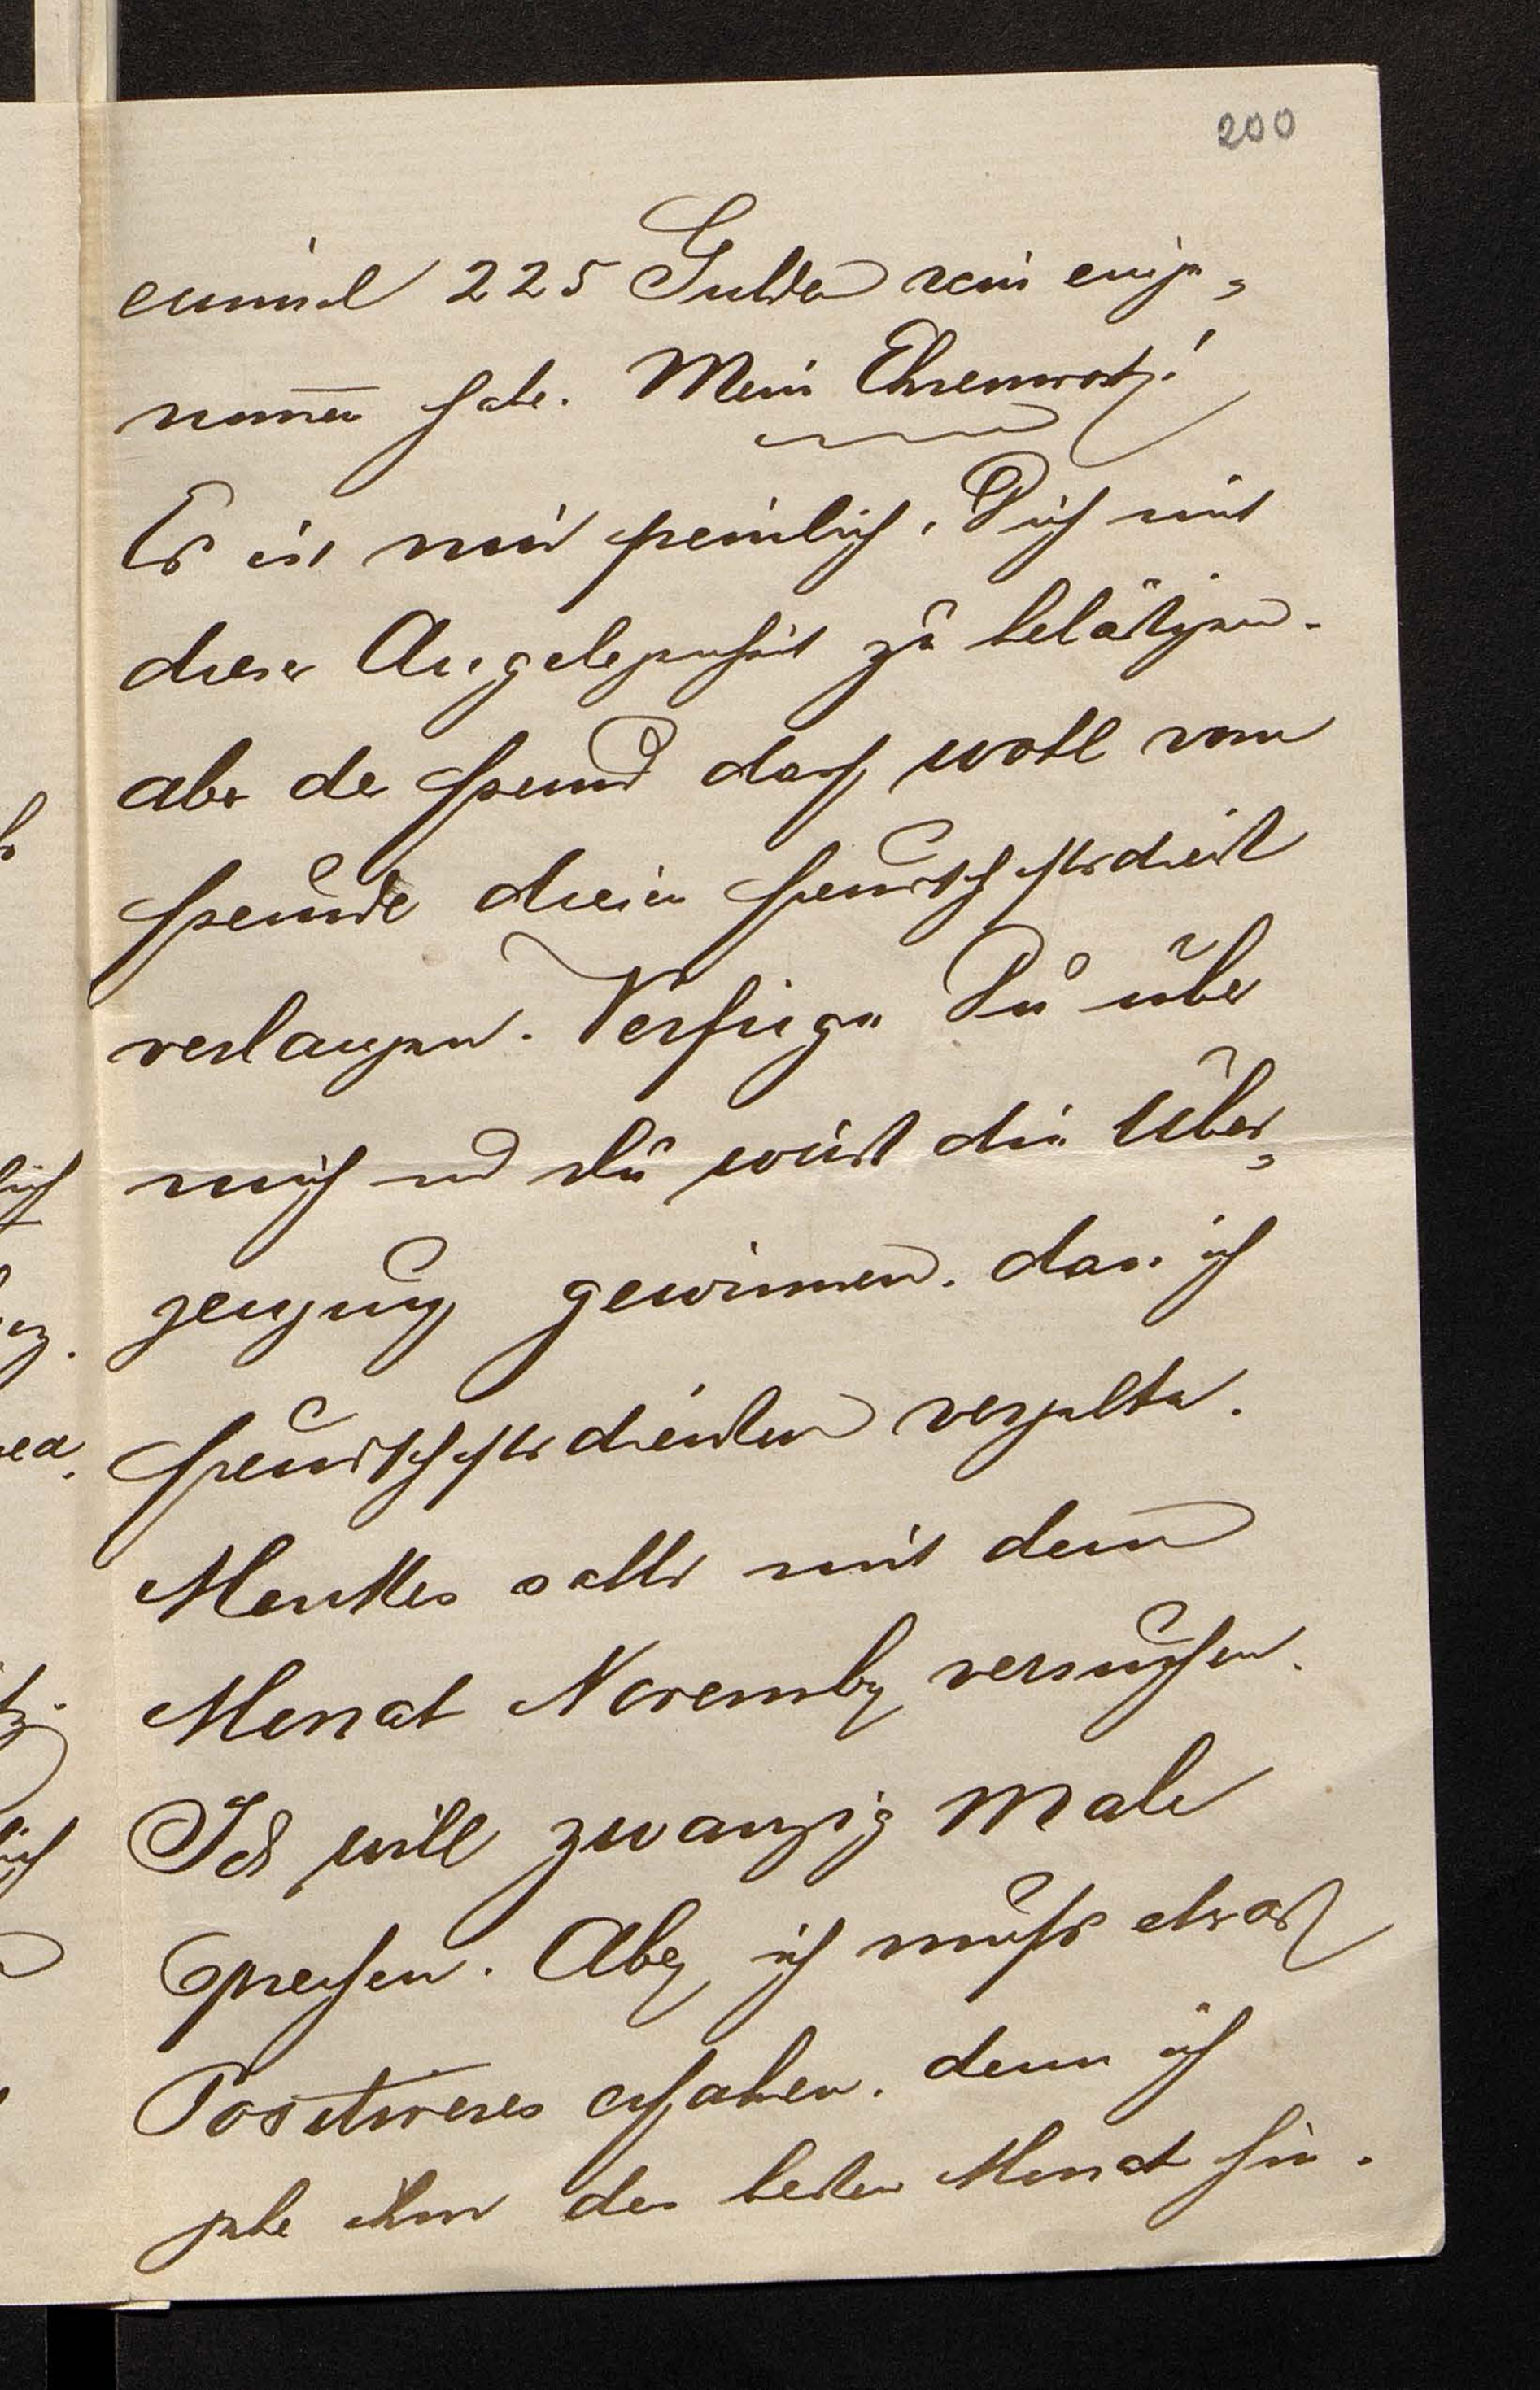 200
einmal 225 Gulden rein einge-
nom̄en habe. Mein Ehrenwort!
Es ist mir peinlich, Dich mit
dieser Angelegenheit zu belästigen.
aber der Freund darf wohl vom
Freunde diesen Freundschaftsdienst
verlangen. Verfüge Du über
mich und Du wirst die Über-
zeugung gewinnen, dass ich
Freundschaftsdienste vergelte.
sollte mit dem
Monat November versuchen.
Ich will zwanzig Male
sprechen. Aber ich muss etwas
Positiveres erfahren, denn ich
gebe ihm den besten Monat hin.